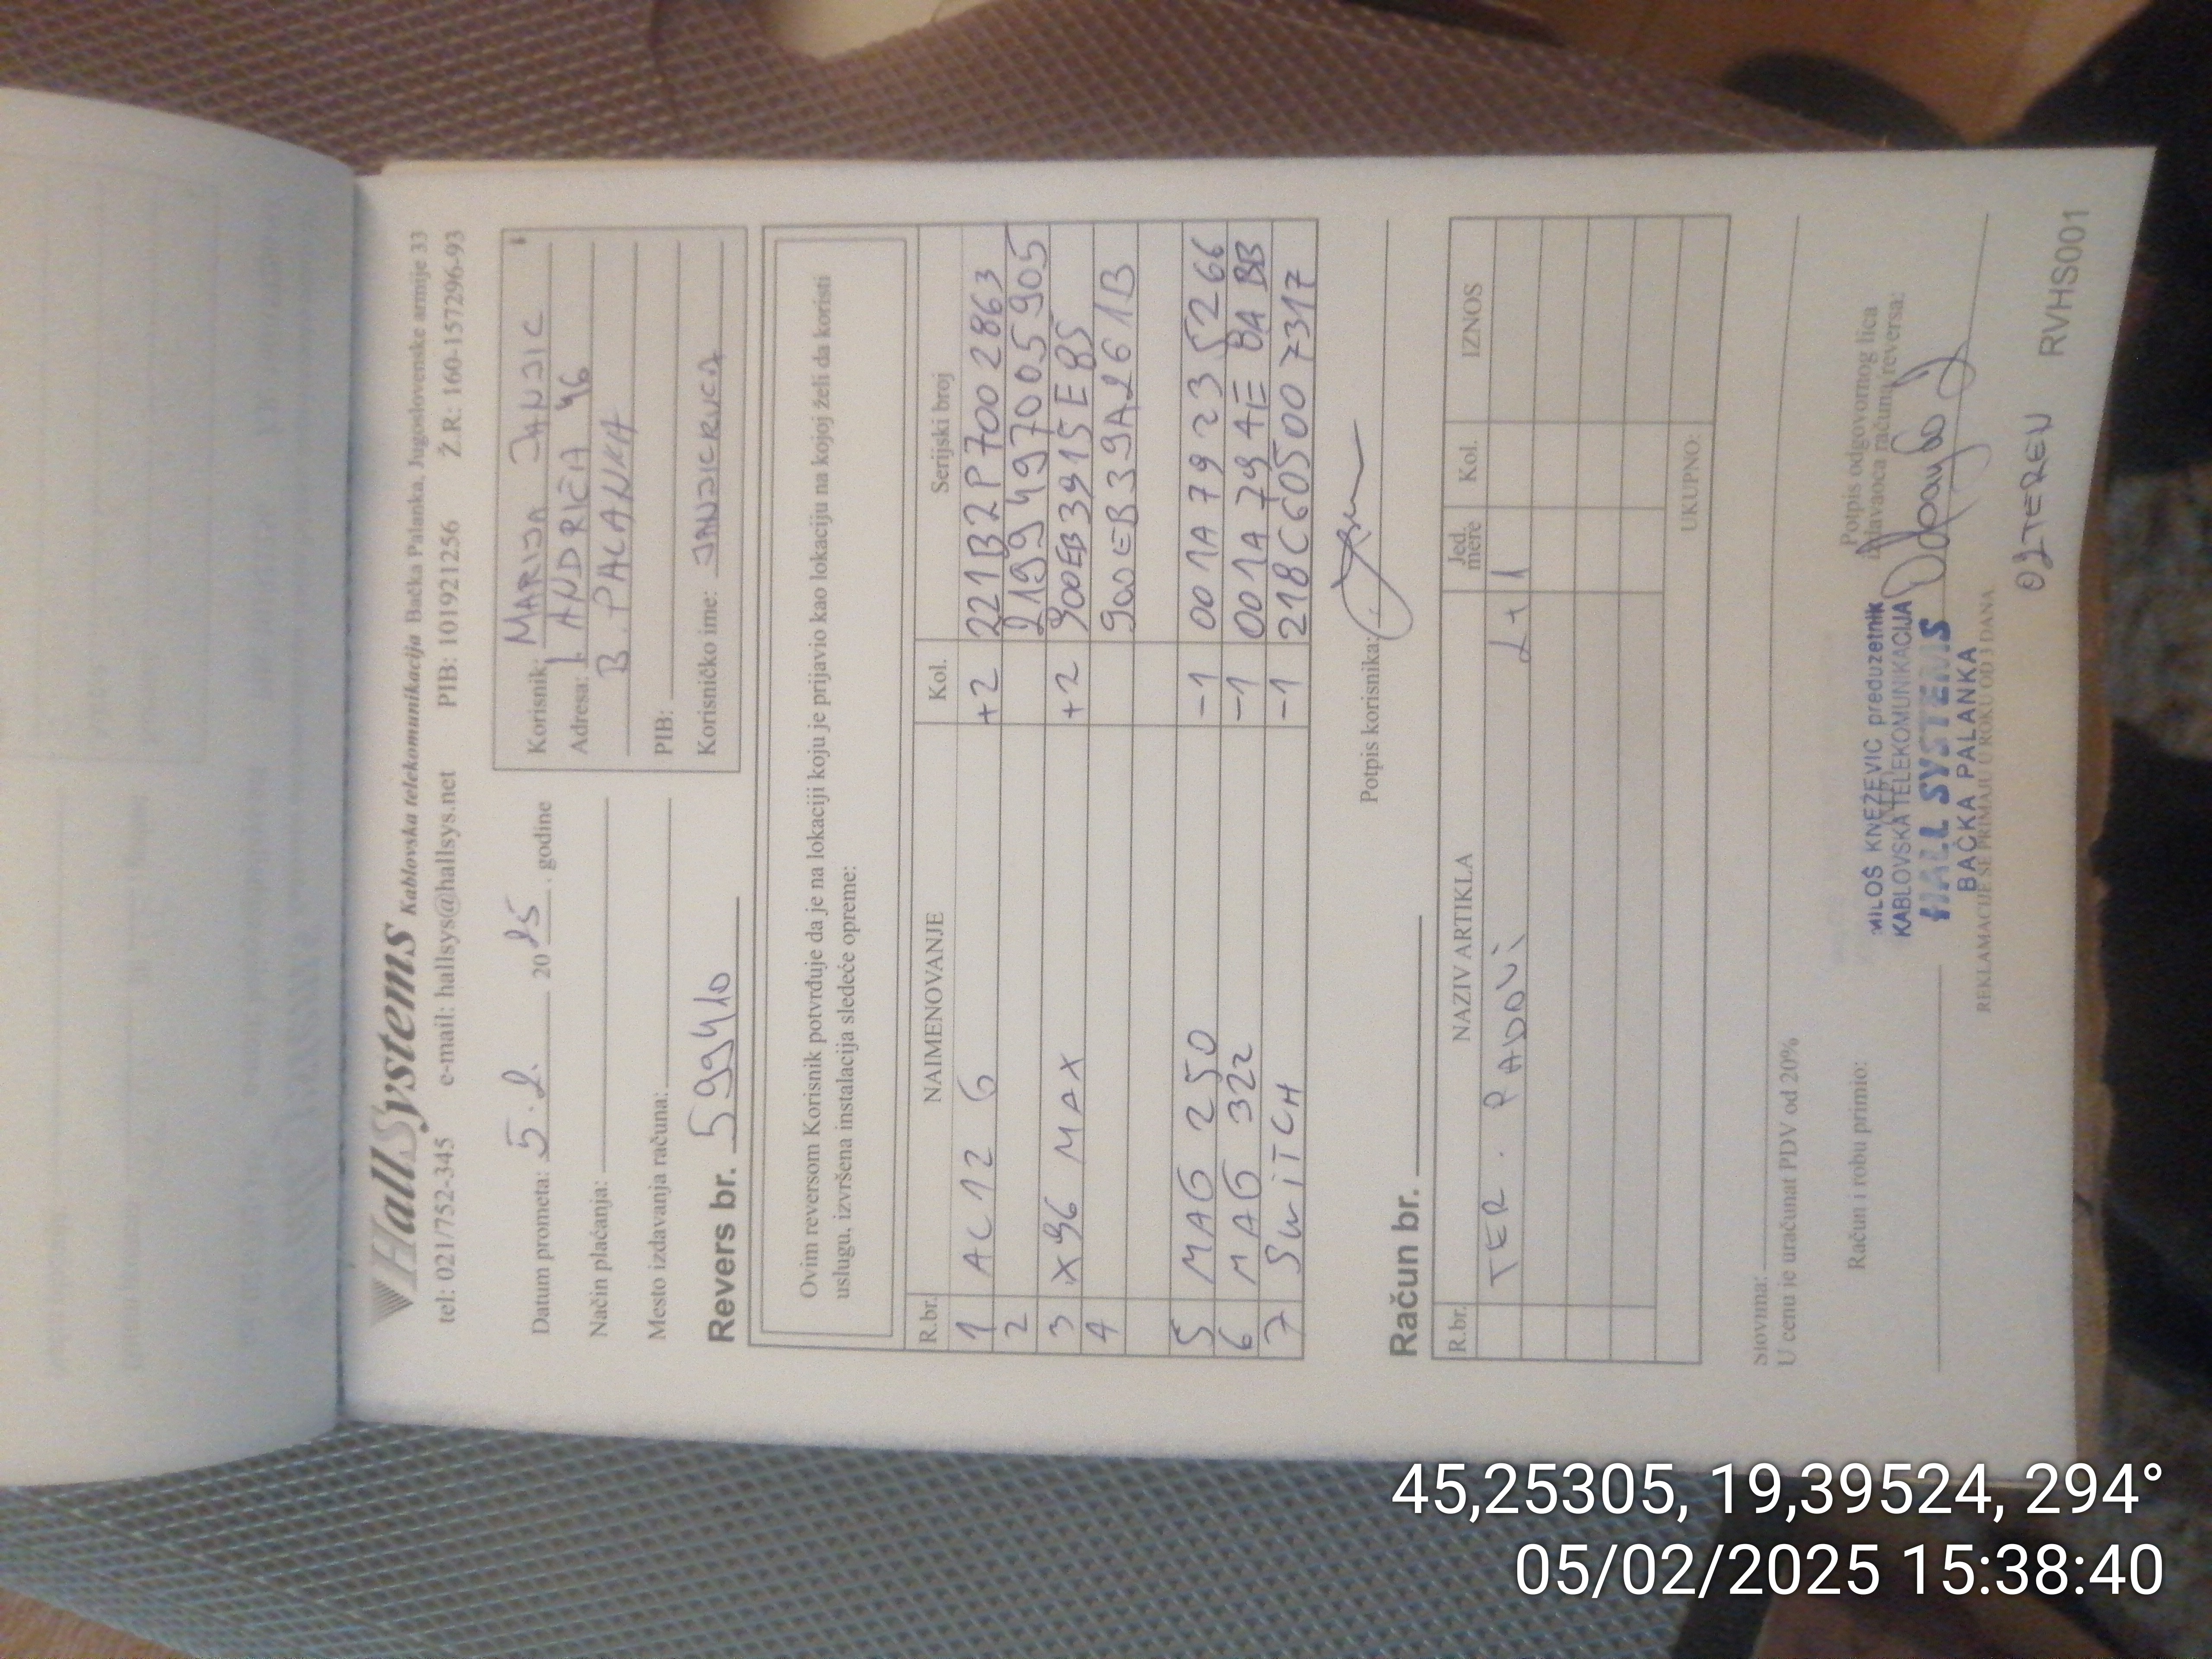 HallSystems Kablovska telekomunikacija Bačka Palanka, Jugoslovenske armije 33
tel: 021/752-345 e-mail: hallsys@hallsys.net PIB: 101921256 Ž.R: 160-157296-93
Datum prometa: 5.2. 2025. godine
Način plaćanja:
Mesto izdavanja računa:
Revers br. 599410
Korisnik: MARIJA JANJIC
Adresa: I. ANDRIĆA 46
B. PALANKA
PIB:
Korisničko ime: JANJICRUCA
Ovim reversom Korisnik potvrđuje da je na lokaciji koju je prijavio kao lokaciju na kojoj želi da koristi
uslugu, izvršena instalacija sledeće opreme:
R.br. NAIMENOVANJE Kol. Serijski broj
1 AC12 G +2 221B2P7002863
2 2199497005905
3 X96 MAX +2 900EB3915E85
4 900EB339A261B
5 MAG 250 -1 001A79235266
6 MAG 322 -1 001A794EBABB
7 SWITCH -1 218C605007317
Potpis korisnika:
Račun br.
R.br. NAZIV ARTIKLA Jed. mere Kol. IZNOS
TER. RADOVI 2+1
UKUPNO:
Slovima:
U cenu je uračunat PDV od 20%
Račun i robu primio:
Potpis odgovornog lica
izdavaoca računa/reversa:
MILOŠ KNEŽEVIĆ preduzetnik
KABLOVSKA TELEKOMUNIKACIJA
HALL SYSTEMS
BAČKA PALANKA
REKLAMACIJE SE PRIMAJU U ROKU OD 3 DANA
02TEREN RVHS001
45,25305, 19,39524, 294°
05/02/2025 15:38:40